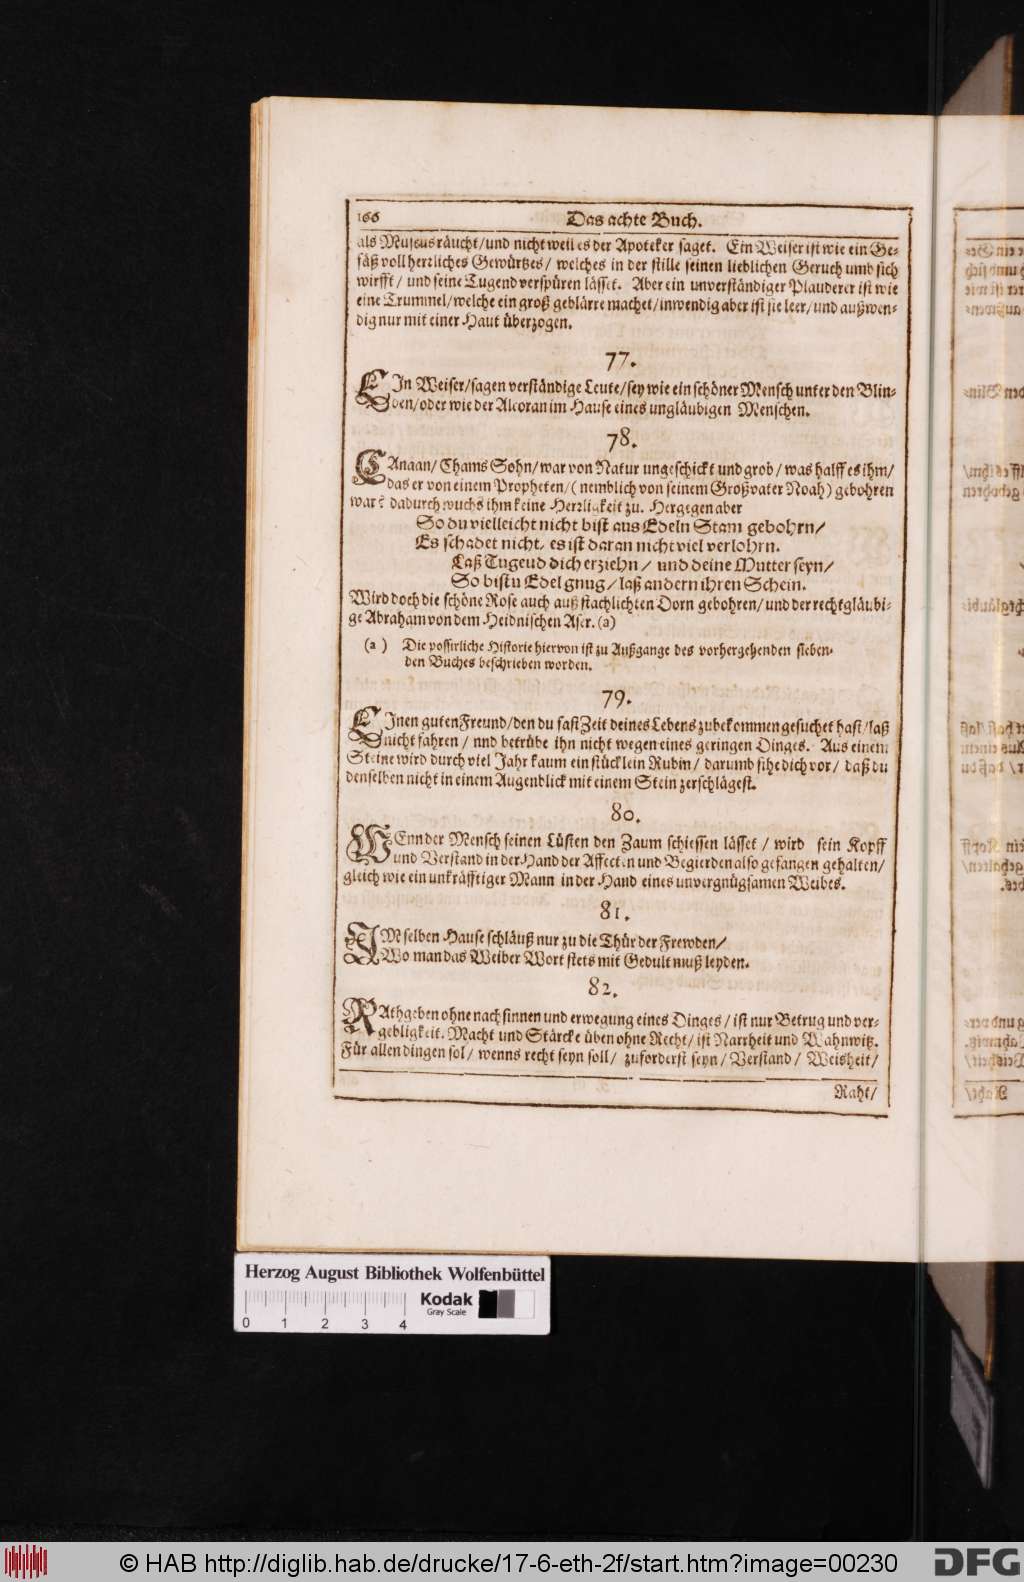 166 Das achte Buch.
als Muscus räucht/und nicht weil es der Apoteker saget. Ein Weiser ist wie ein Ge-
säß voll herrliches Gewürtzes/ welches in der stille seinen lieblichen Geruch umb sich
wirfft/ und seine Tugend verspüren lässet. Aber ein unverständiger Plauderer ist wie
eine Trummel/welche ein groß geblärre machet/inwendig aber ist sie leer/und außwen-
dig nur mit einer Haut überzogen.
77.
EIn Weiser/sagen verständige Leute/sey wie ein schöner Mensch unter den Blin-
den/oder wie der Alcoran im Hause eines ungläubigen Menschen.
78.
CAnaan/ Chams Sohn/ war von Natur ungeschickt und grob/ was halff es ihm/
das er von einem Propheten/( nemblich von seinem Großvater Noah) gebohren
war? dadurch wuchs ihm keine Herrligkeit zu. Hergegen aber
So du vielleicht nicht bist aus Edeln Stam gebohrn/
Es schadet nicht, es ist daran nicht viel verlohrn.
Laß Tugeud dich erziehn/ und deine Mutter seyn/
So bistu Edel gnug/ laß andern ihren Schein.
Wird doch die schöne Rose auch auß stachlichten Dorn gebohren/und der rechtgläubi-
ge Abraham von dem Heidnischen Aser. (a)
(a) Die possirliche Historie hiervon ist zu Außgange des vorhergehenden sieben-
den Buches beschrieben worden.
79.
EInen guten Freund/den du fast Zeit deines Lebens zubekommen gesuchet hast/laß
nicht fahren/ nnd betrübe ihn nicht wegen eines geringen Dinges. Aus einem
Steine wird durch viel Jahr kaum ein stücklein Rubin/ darumb sihe dich vor/ daß du
denselben nicht in einem Augenblick mit einem Stein zerschlägest.
80.
WEnn der Mensch seinen Lüsten den Zaum schiessen lässet/ wird sein Kopff
und Verstand in der Hand der Affecten und Begierden also gefangen gehalten/
gleich wie ein unkräfftiger Mann in der Hand eines unvergnügsamen Weibes.
81.
IMselben Hause schläuß nur zu die Thür der Frewden/
Wo man das Weiber Wort stets mit Gedult muß leyden.
82.
RAthgeben ohne nach sinnen und erwegung eines Dinges/ ist nur Betrug und ver-
gebligkeit. Macht und Stärcke üben ohne Recht/ ist Narrheit und Wahnwitz.
Für allen dingen sol/ wenns recht seyn soll/ zuforderst seyn/ Verstand/ Weisheit/
Raht/
Herzog August Bibliothek Wolfenbüttel
Kodak
Gray Scale
0 1 2 3 4
© HAB http://diglib.hab.de/drucke/17-6-eth-2f/start.htm?image=00230
DFG